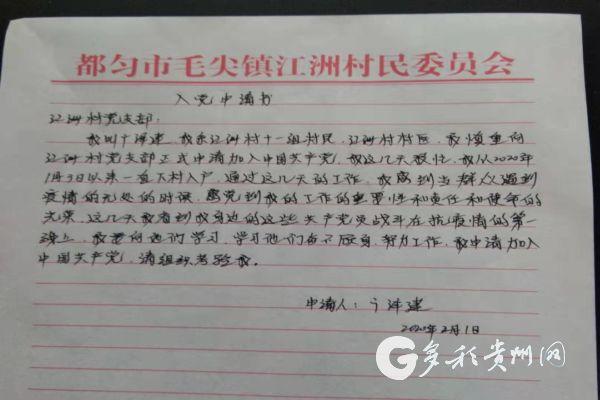 都匀市毛尖镇江洲村民委员会
入党申请书
江洲村党支部：
我叫 建，我系江洲村十一组村民，江洲村村医，我慎重向
江洲村党支部正式申请加入中国共产党，我这几天 ，我从2020年
1月3日以来一直下村入户，通过这几天的工作，我感到当群众遇到
疫情 的时候，感觉到我的工作的重要性和责任和使命的
光荣，这几天我看到我身边的这些共产党员战斗在抗疫情的第一
线上，我要向他们学习，学习他们奋不顾身，努力工作，我申请加入
中国共产党，请组织考验我。
申请人： 建
2020年2月1日
多彩贵州网